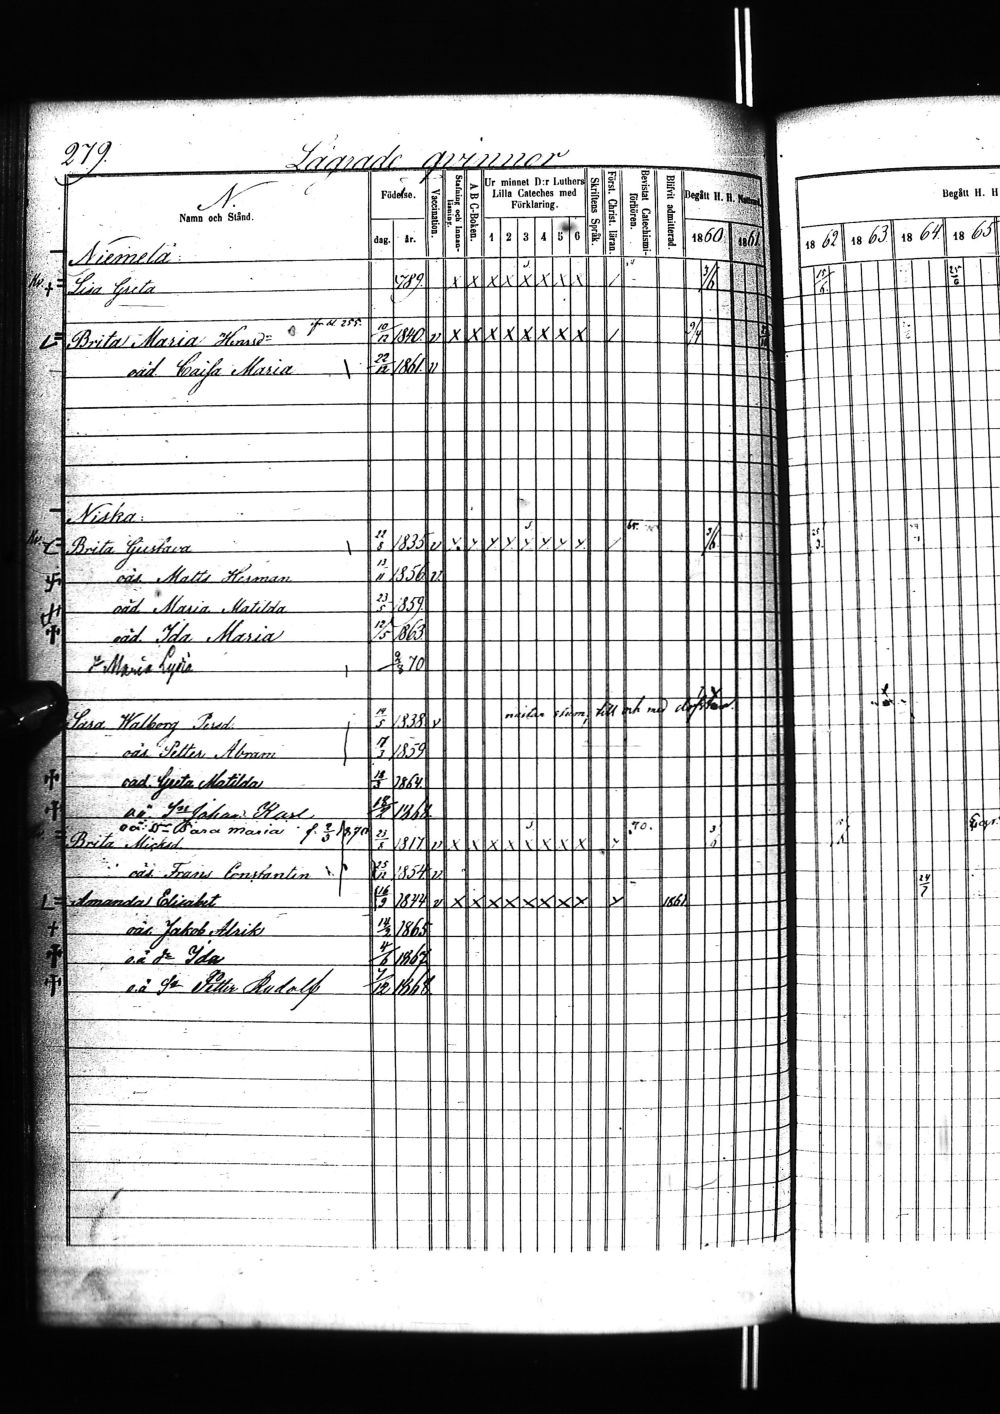 279.
Lägrade qvinnor
N.
Namn och Stånd.
Födelse.
dag. år.
Vaccination.
Stafning och Innanläsning.
A B C-Boken.
Ur minnet D:r Luthers Lilla Cateches med Förklaring.
1 2 3 4 5 6
Skriftens Språk.
Först. Christ. läran.
Bevistat Catechismiförhören.
Blifvit admitterad.
Begått H. H. Nattvard
1860 1861
Begått H. H
1862 1863 1864 1865
Niemelä
Lisa Greta 789 x x x x x x x x / 3/6
ifr bl. 255.
Brita Maria Henrsdr 10/12 1840 v x x x x x x x x / 9/4
oäd. Caisa Maria 22/12 1861 v
Niska:
Brita Gustava 22/8 1835 v x x x x x x x x / 3/6
oäs. Matts Herman 13/11 1856 v
oäd. Maria Matilda 23/5 1859
oäd. Ida Maria 12/5 1863
Dr Maria Lydia 9/3 70
Sara Walborg Persd. 14/5 1838 v nästan stum, till och med
oäs. Petter Abram 17/3 1859
oäd. Greta Matilda 18/3 1864.
o.ä. Sn Johan Karl 18/2 1868
o.ä. Dr Sara Maria f. 2/3 1870
Brita Micksd. 23/8 1817 v x x x x x x x x 70. 3/6
oäs. Frans Constantin 25/12 1854 v
Amanda Elisabet 16/9 1844 v x x x x x x x x x 1861 24/7
oäs. Jakob Alrik 14/2 1865
o.ä dr Ida 4/6 1867
o.ä Sn Petter Rudolf 7/12 1868